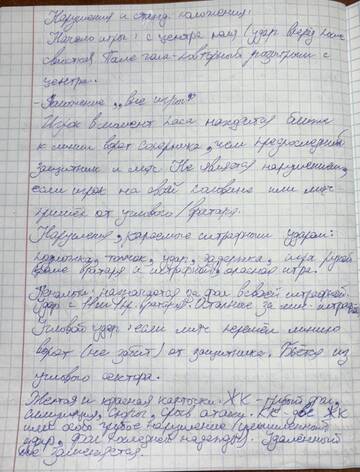 Нарушения и станд. положения:
Начало игры: с центра поля (удар вперёд после
свистка. После гола - повторный розыгрыш с
центра.
- Положение "вне игры":
Игрок в момент паса находится ближе
к линии ворот соперника, чем предпоследний
защитник и мяч. Не является нарушением,
если игрок на своей половине или мяч
пришёл от углового/вратаря.
Нарушения, караемые штрафным ударом:
подножка, толчок, удар, задержка, игра рукой
кроме вратаря в штрафной, опасная игра.
Пенальти назначается за фол в своей штрафной
удар с 11 м, вратарь. Остальное за
Угловой удар: если мяч пересёк линию
ворот (не забит) от защитника. Бьётся из
углового сектора.
Жёлтая и красная карточки. ЖК - грубый фол,
симуляция, срыв атаки. КК - две ЖК
или особо грубое нарушение (умышленный
удар, фол последней надежды). Удалённый
не заменяется.